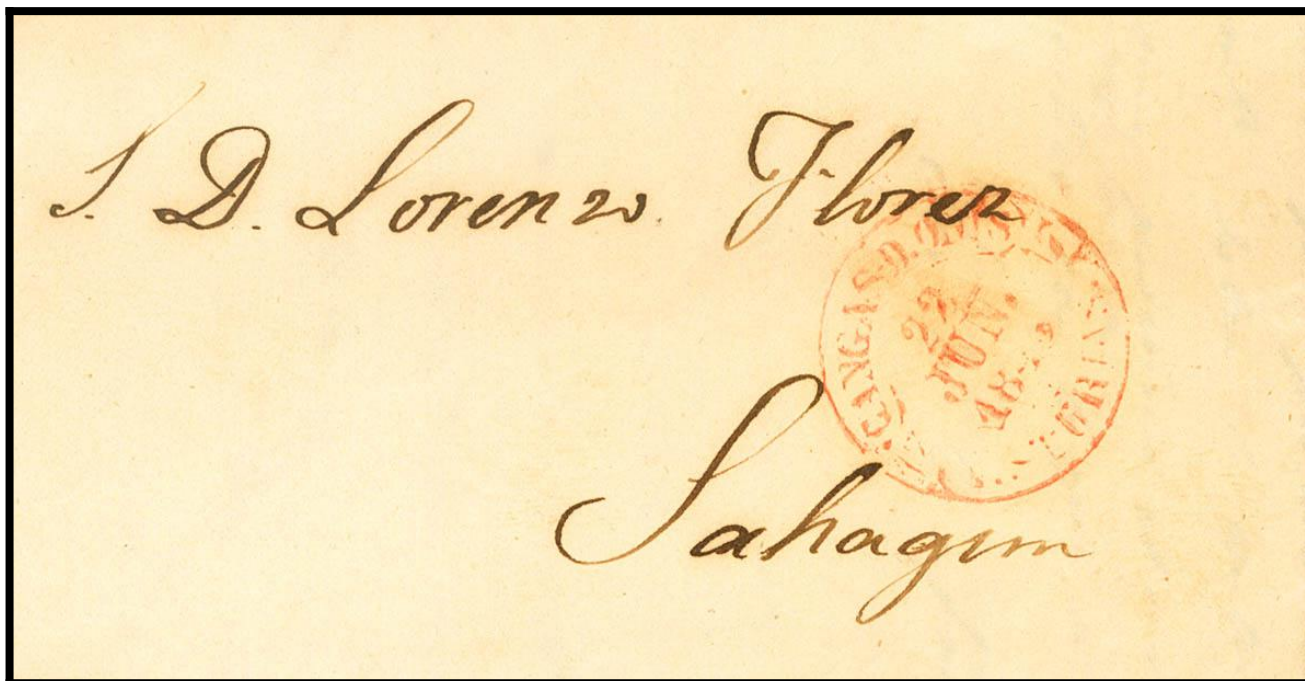 S. D. Lorenzo Florez
CANGAS D.
22
JUN.
Sahagun